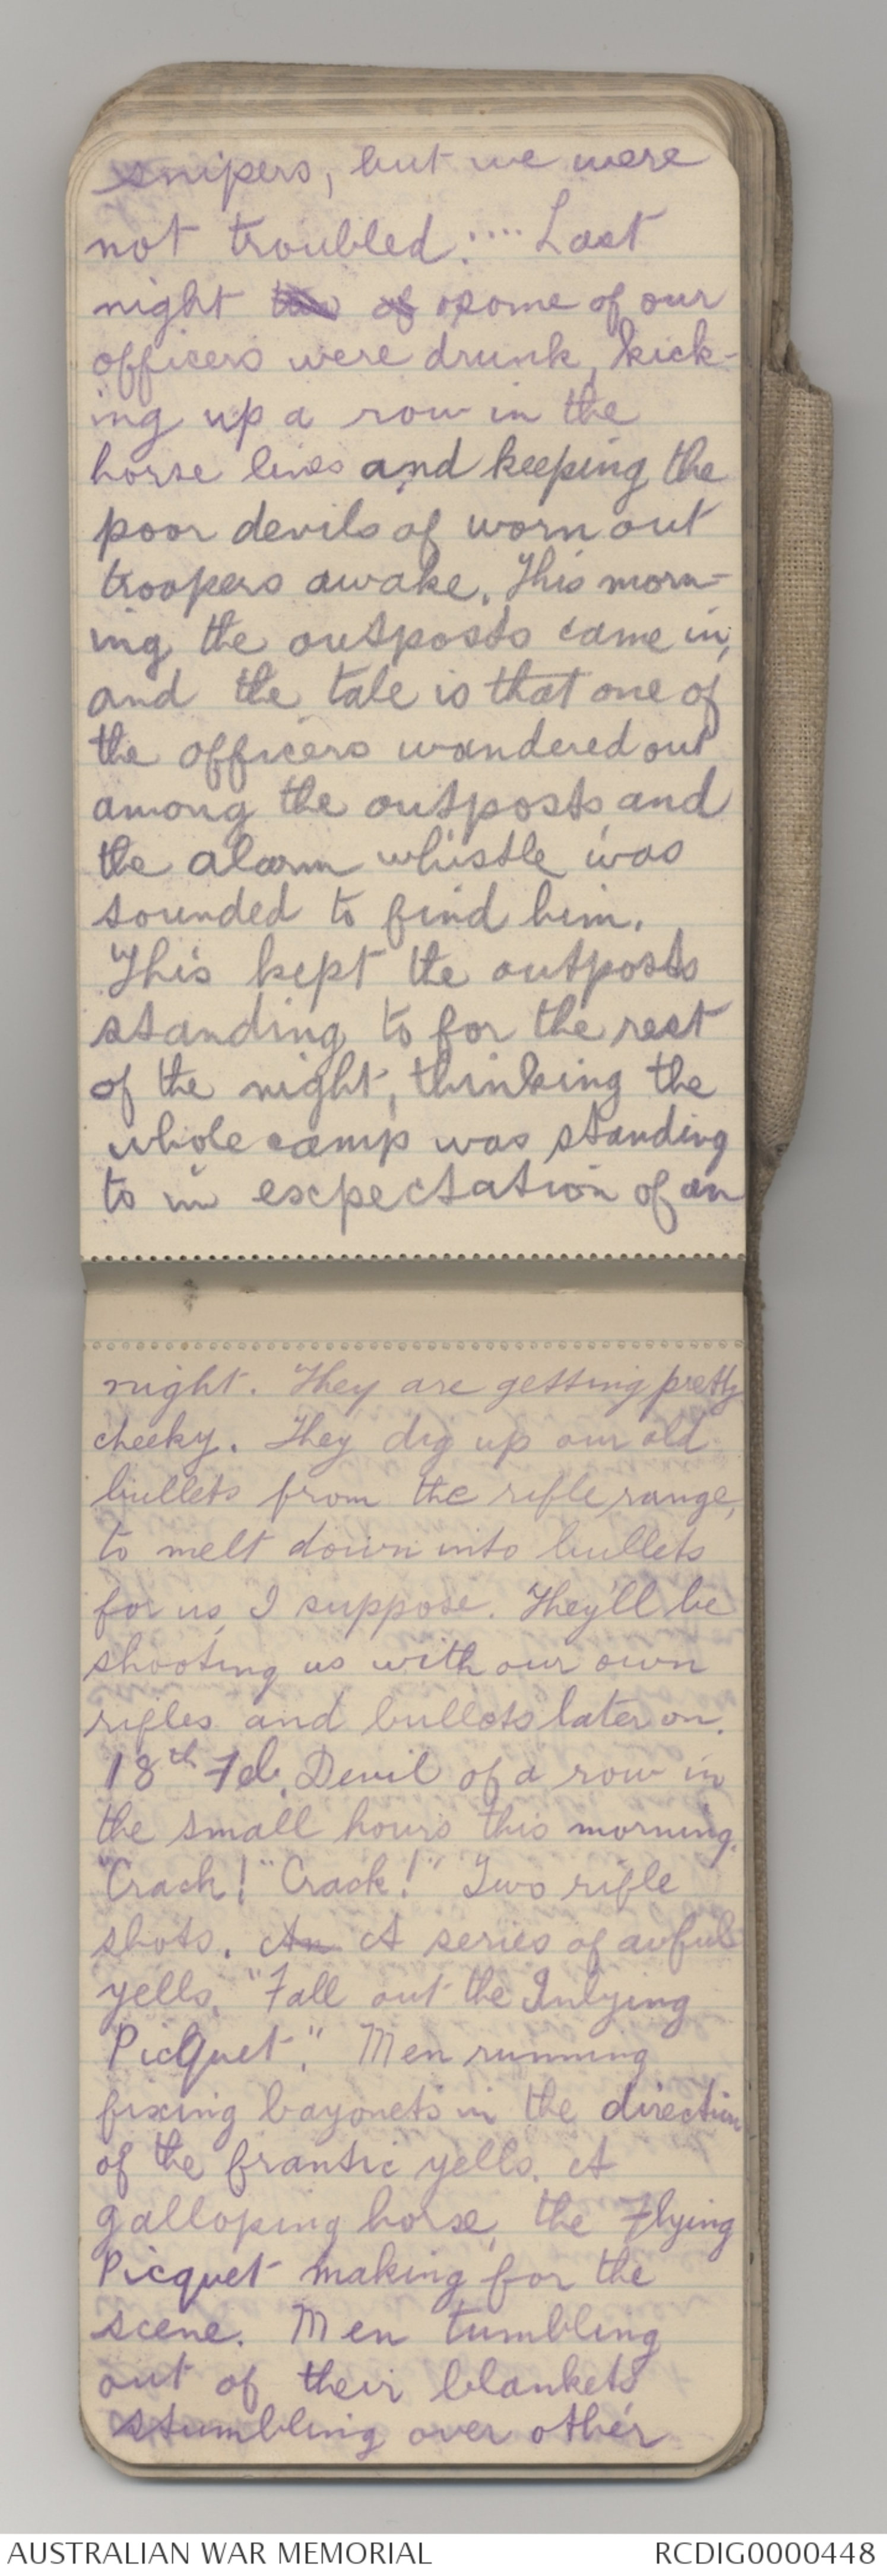 snipers, but we were
not troubled:.... Last
night some of our
officers were drunk, kick-
ing up a row in the
horse lines and keeping the
poor devils of worn out
troopers awake. This morn-
ing the outposts came in,
and the tale is that one of
the officers wandered out
among the outposts and
the alarm whistle was
sounded to find him.
This kept the outposts
standing to for the rest
of the night, thinking the
whole camp was standing
to in expectation of an
night. They are getting pretty
cheeky. They dig up our old
bullets from the rifle range,
to melt down into bullets
for us, I suppose. They'll be
shooting us with our own
rifles and bullets later on.
18th Feb. Devil of a row in
the small hours this morning.
"Crack!" "Crack!" Two rifle
shots. An A series of awful
yells. "Fall out the Inlying
Picquet". Men running
fixing bayonets in the direction
of the frantic yells. A
galloping horse, the Flying
Picquet making for the
scene. Men tumbling
out of their blankets
stumbling over other
AUSTRALIAN WAR MEMORIAL
RCDIG0000448